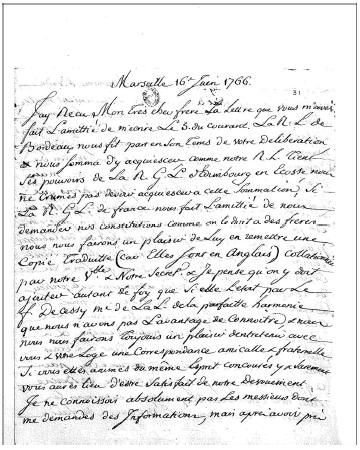 Marseille 16e Juin 1766.
31
J'ay Recu Mon Tres cher frere La Lettre que vous m'avés
fait L'amitié de m'ecrire Le 5. du Courant. La R. L. de
Bordeaux nous fit part en son Tems de votre Deliberation
& nous somma d'y acquiescer comme notre R. L. tient
Ses pouvoirs de La R. G. L. d'Edimbourg en Ecosse nous
ne Crumes pas devoir acquiescer a cette Sommation, Si
La R. G. L. de france nous fait L'amitié de nous
demander nos constitutions comme on le doit a des freres
nous nous fairons un plaisir de Luy en remettre une
Copie Traduitte (car Elles sont en Anglais) collationnée
par notre Vble & Notre Secret. & Je pense qu'on y doit
ajouter autant de foy que Si elle L'etoit par Le
f. De Cessy me. de La L. de La parfaitte harmonie
que nous n'avons pas L'avantage de Connoitre &
nous nous fairons toujours un plaisir d'entretenir avec
vous & votre Loge une Correspondance amicalle & fraternelle
Si vous ettes animés du même Esprit concourés y & Surement
vous aurés Lieu d'estre Satisfait de notre Devouement.
Je ne Connoissois absolument pas Les messieurs dont
me demandes des Informations, mais aprés avoir pris